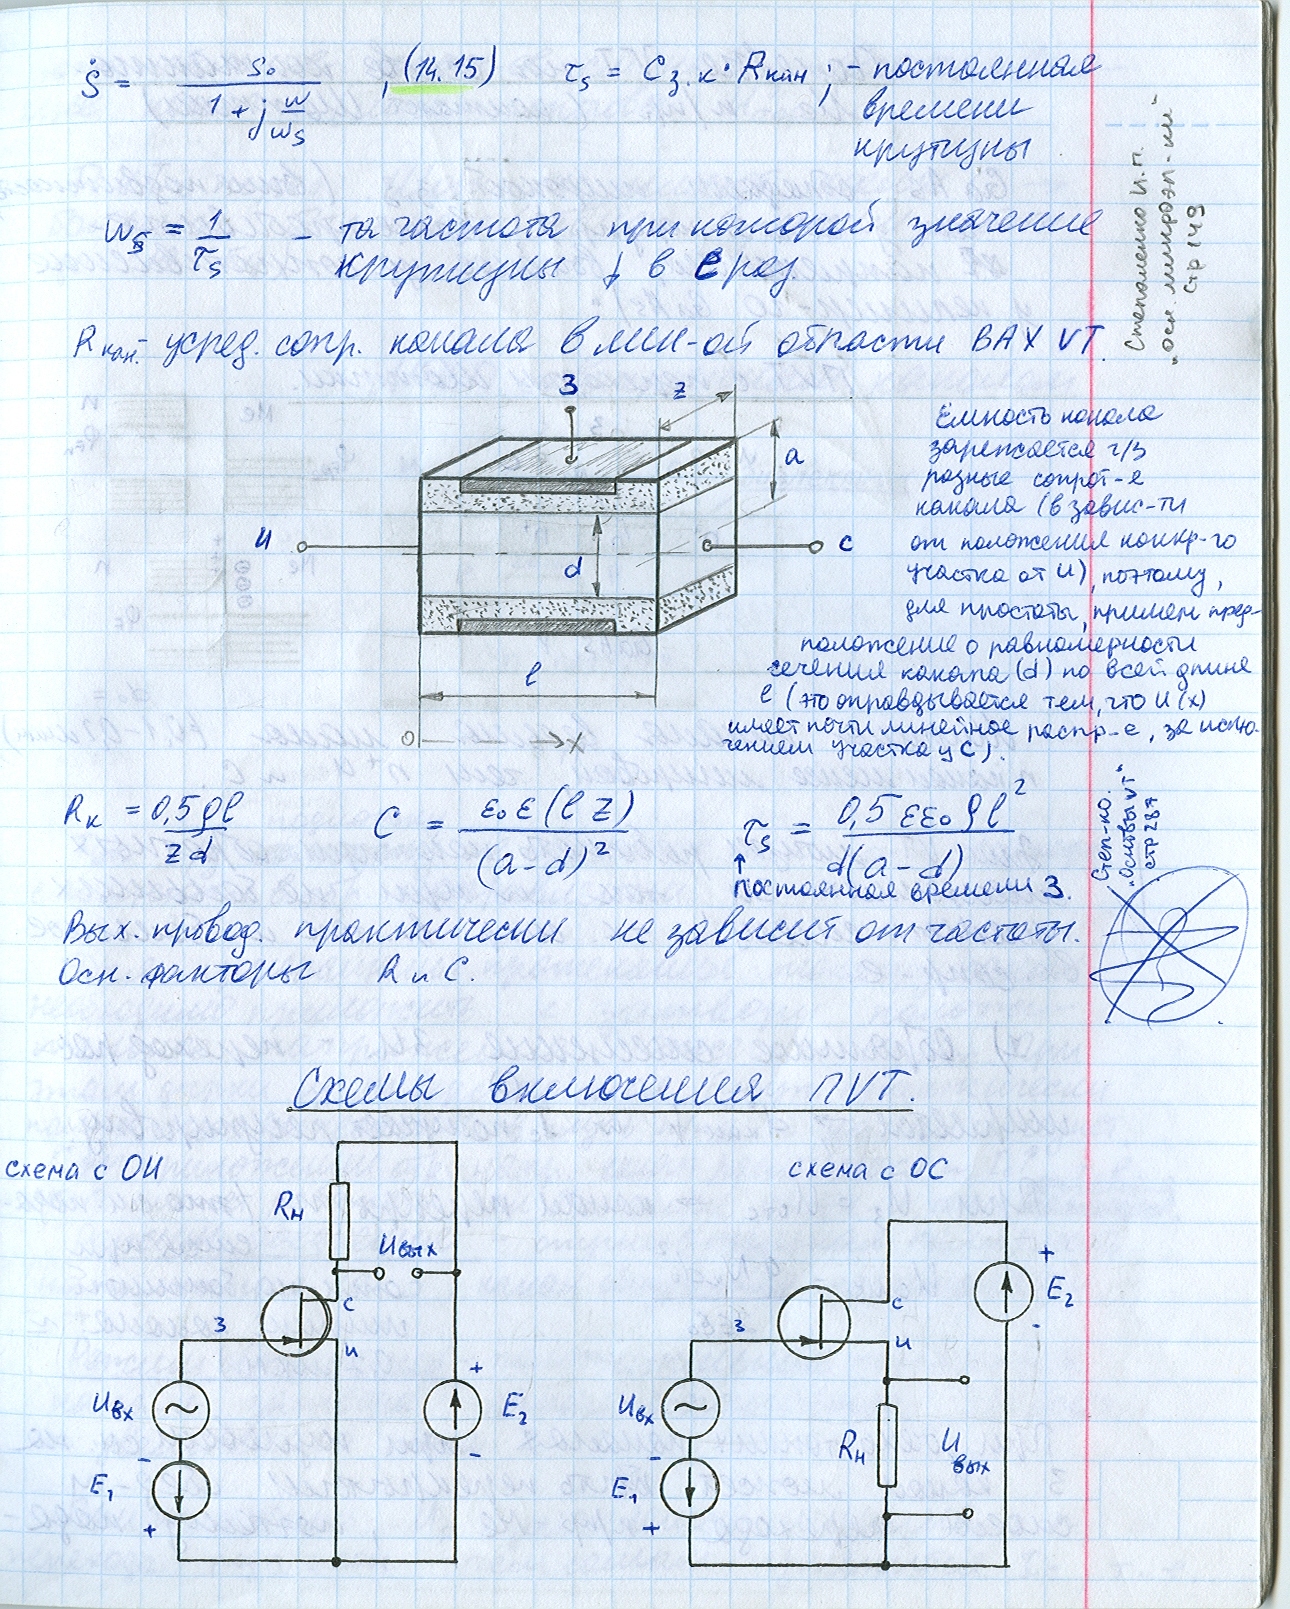 Ṡ = S₀ / (1 + j ω/ωs) , (14.15) τs = Cз.к · Rкан ; - постоянная
времени
крутизны
ωs = 1/τs – та частота при которой значение
крутизны ↓ в e раз.
Степаненко И.П.
"осн. микроэл-ки"
стр 149
Rкан.- усред. сопр. канала в лин-ой области ВАХ VT.
З
z
a
И
С
d
l
0
x
Емкость канала
заряжается ч/з
разные сопрот-е
канала (в завис-ти
от положения конкр-го
участка от И), поэтому,
для простоты, примем пред-
положение о равномерности
сечения канала (d) по всей длине
l (это оправдывается тем, что U(x)
имеет почти линейное распр-е, за исклю-
чением участка у С).
Rк = 0,5ρl / zd C = ε₀ε(l z) / (a-d)² τs = 0,5 εε₀ρl² / d(a-d)
↑
постоянная времени З.
Степ-ко.
"Основы VT"
стр 287
Вых. провод. практически не зависит от частоты.
Осн. факторы R и C.
Схемы включения ПVT.
схема с ОИ
Rн
Uвых
с
з
и
Uвх
+
E₂
-
-
E₁
+
схема с ОС
+
E₂
-
с
з
и
Uвх
Rн
Uвых
-
E₁
+